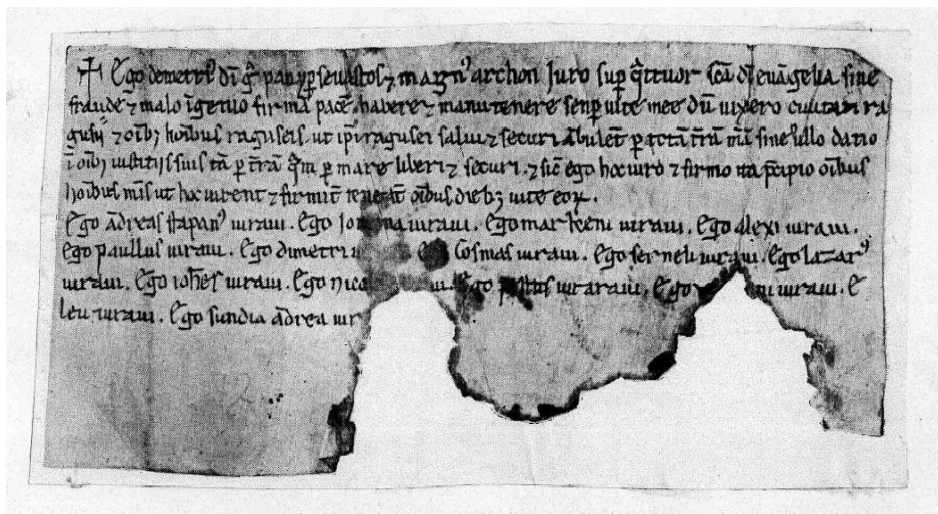 ✝ Ego demetri᷒ dī gr̄a pan yp sevastos ⁊ magn᷒ archon Juro sup q̄ttuor scā dī evāgelia sine
fraude ⁊ malo īgenio firmā pacē habere ⁊ manutenere senp vite mee dū vixero civitati ra
gusii ⁊ oīb; hoībus raguseis. ut ip̄i ragusei salvi ⁊ securi ābulēt p totā t̄rā mēā sine ullo datio
ī oīb; iustitiis suis tā p t̄rā q̄m p mare liberi ⁊ securi. ⁊ sic̄ ego hoc iuro ⁊ firmo ita p̄cipio oībus
hoībus mīs ut hoc iurent ⁊ firmit̄ teneāt oībus dieb; vite eoꝝ.
Ego ādreas stapan᷒ iuravi. Ego iuravi. Ego markeni iuravi. Ego alexi iuravi.
Ego paullus iuravi. Ego dimetri Cosmas iuravi. Ego serneli iuravi. Ego lazar᷒
iuravi. Ego ioh̄es iuravi. Ego nico vi. Ego iuraravi. Ego iuravi. E
leu iuravi. Ego sundia ādrea iur